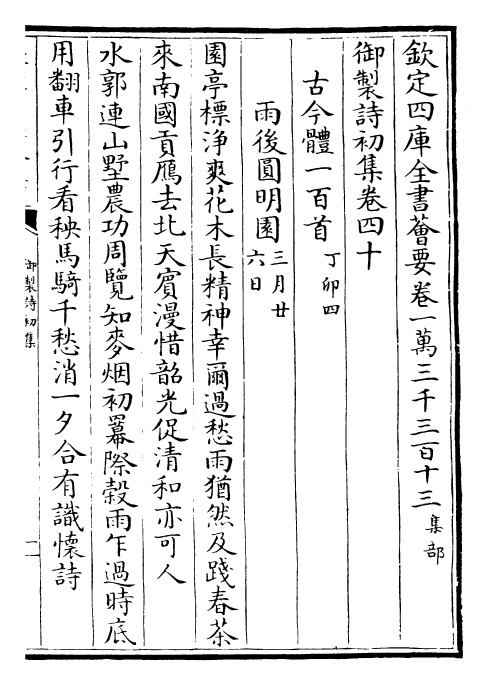 欽定四庫全書薈要卷一萬三千三百十三集部
御製詩初集卷四十
古今體一百首丁卯四
雨後圓明園三月廿六日
園亭標淨爽花木長精神幸爾過愁雨猶然及踐春茶
來南國貢鴈去北天賓漫惜韶光促清和亦可人
水郭連山墅農功周覽知麥烟初羃際穀雨乍過時底
用翻車引行看秧馬騎千愁消一夕合有識懷詩
御製詩初集